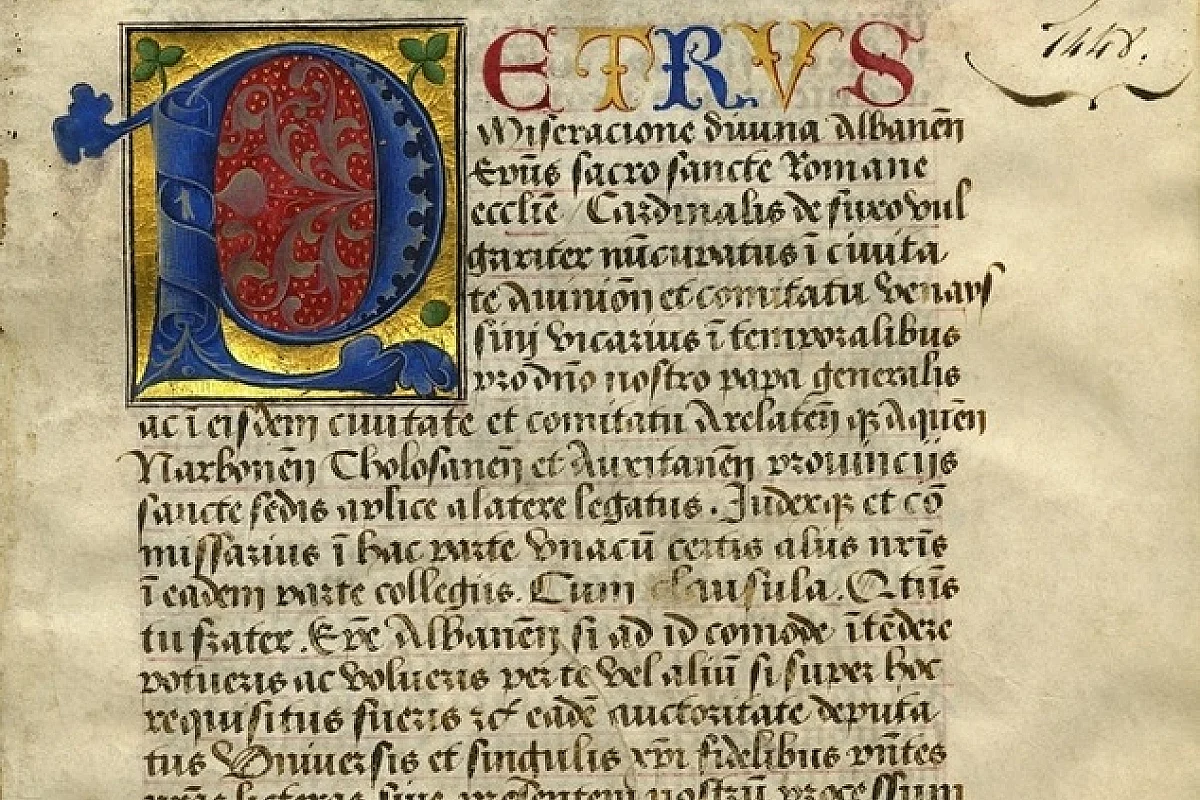 PETRVS
1448.
Miseracione diuina Albaneñ
Ep̃us sacro sancte Romane
eccl̃ie Cardinalis de fuxo vul
gariter nũcupatus ĩ ciuita
te Auinioñ et comitatu venays
sini vicarius ĩ temporalibus
pro dño nostro papa generalis
ac ĩ eisdem ciuitate et comitatu Arelateñ q̃ Aqueñ
Narboneñ Tholosaneñ et Auxitaneñ prouinciis
sancte sedis aplice a latere legatus. Judexq̃ et cõ
missarius ĩ hac parte vnacũ certis aliis nr̃is
ĩ eadem parte collegis. Cum clausula. Q tũs
tu frater. Ep̃e Albaneñ si ad id comode ĩtẽdere
potueris ac volueris per te vel aliũ si super hoc
requisitus fueris ⁊c̃ eadẽ auctoritate deputa
tus Vniuersis et singulis xp̃i fidelibus pñtes
nr̃as licteras siue presentem nostrũ processum